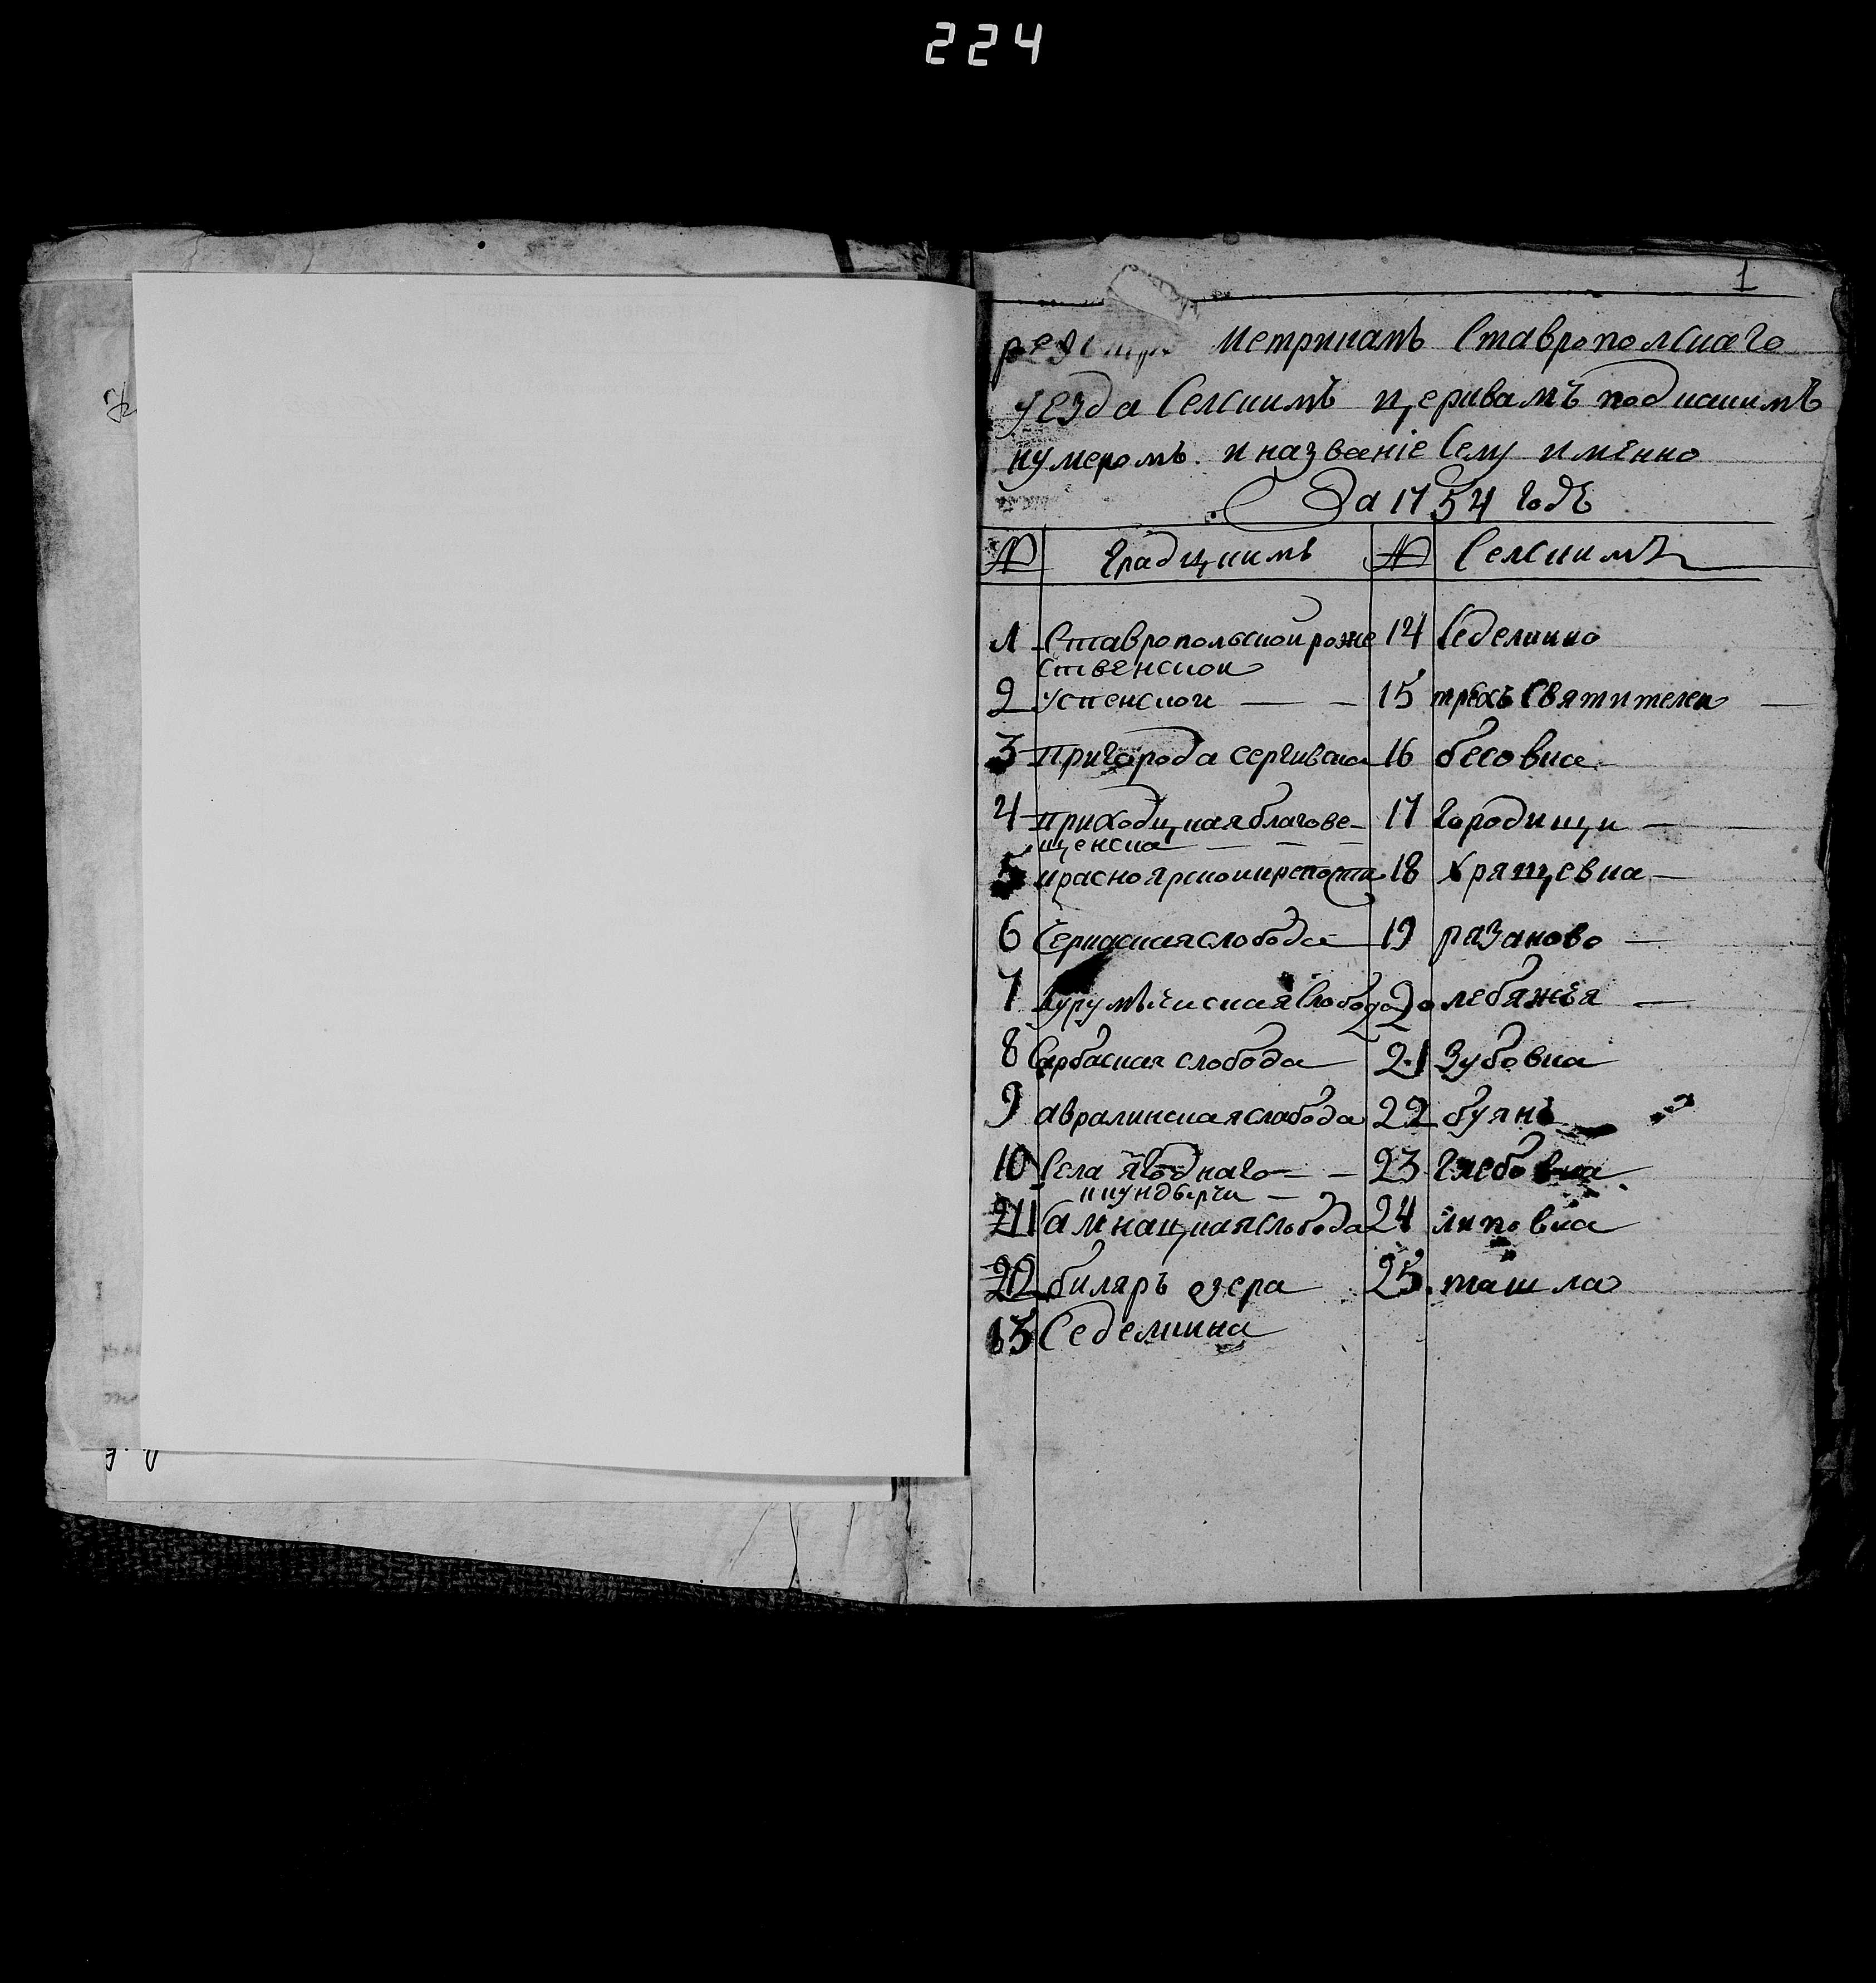 224
1
реэстръ метрикамъ Ставрополскаго
уезда Селскимъ церквамъ под какимъ
нумеромъ. и названіе Селу имянно
За 1754 годъ
№ Градцкимъ № Селскимъ
1 Ставропольской роже 14 Седелкино
ственской
2 успенской — — 15 трехъ Святителей —
3 пригорода сергивска 16 бесовка
4 приходцкая благове- 17 Городищи —
щенска — — —
5 красноярской крепости 18 Хрящевка —
6 Черкаская слобода 19 разаново —
7 Слобода 20 лебяжья —
8 слобода 21 Зубовка
9 авралинская слабода 22 буянъ
10 Села Ягоднаго — — 23 Глебовка
и кундырчи —
11 слобода 24 липовка
12 биляръ озера 25. ташла
13 Седелкина